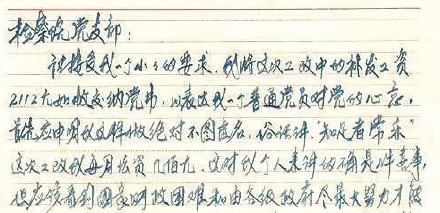 检察院党支部:
请接受我一个小小的要求,我将这次工改中的补发工资
2112元如数交纳党市,以表达我一个普通党员对党的心意,
首先应申明我这样做绝对不图虚名,俗话讲,知足者常乐"
这次工改我每月长资几佰元,这对我个人来讲的确是件喜事,
但应该看到国家财政困难和由各级政府尽最大努力才能